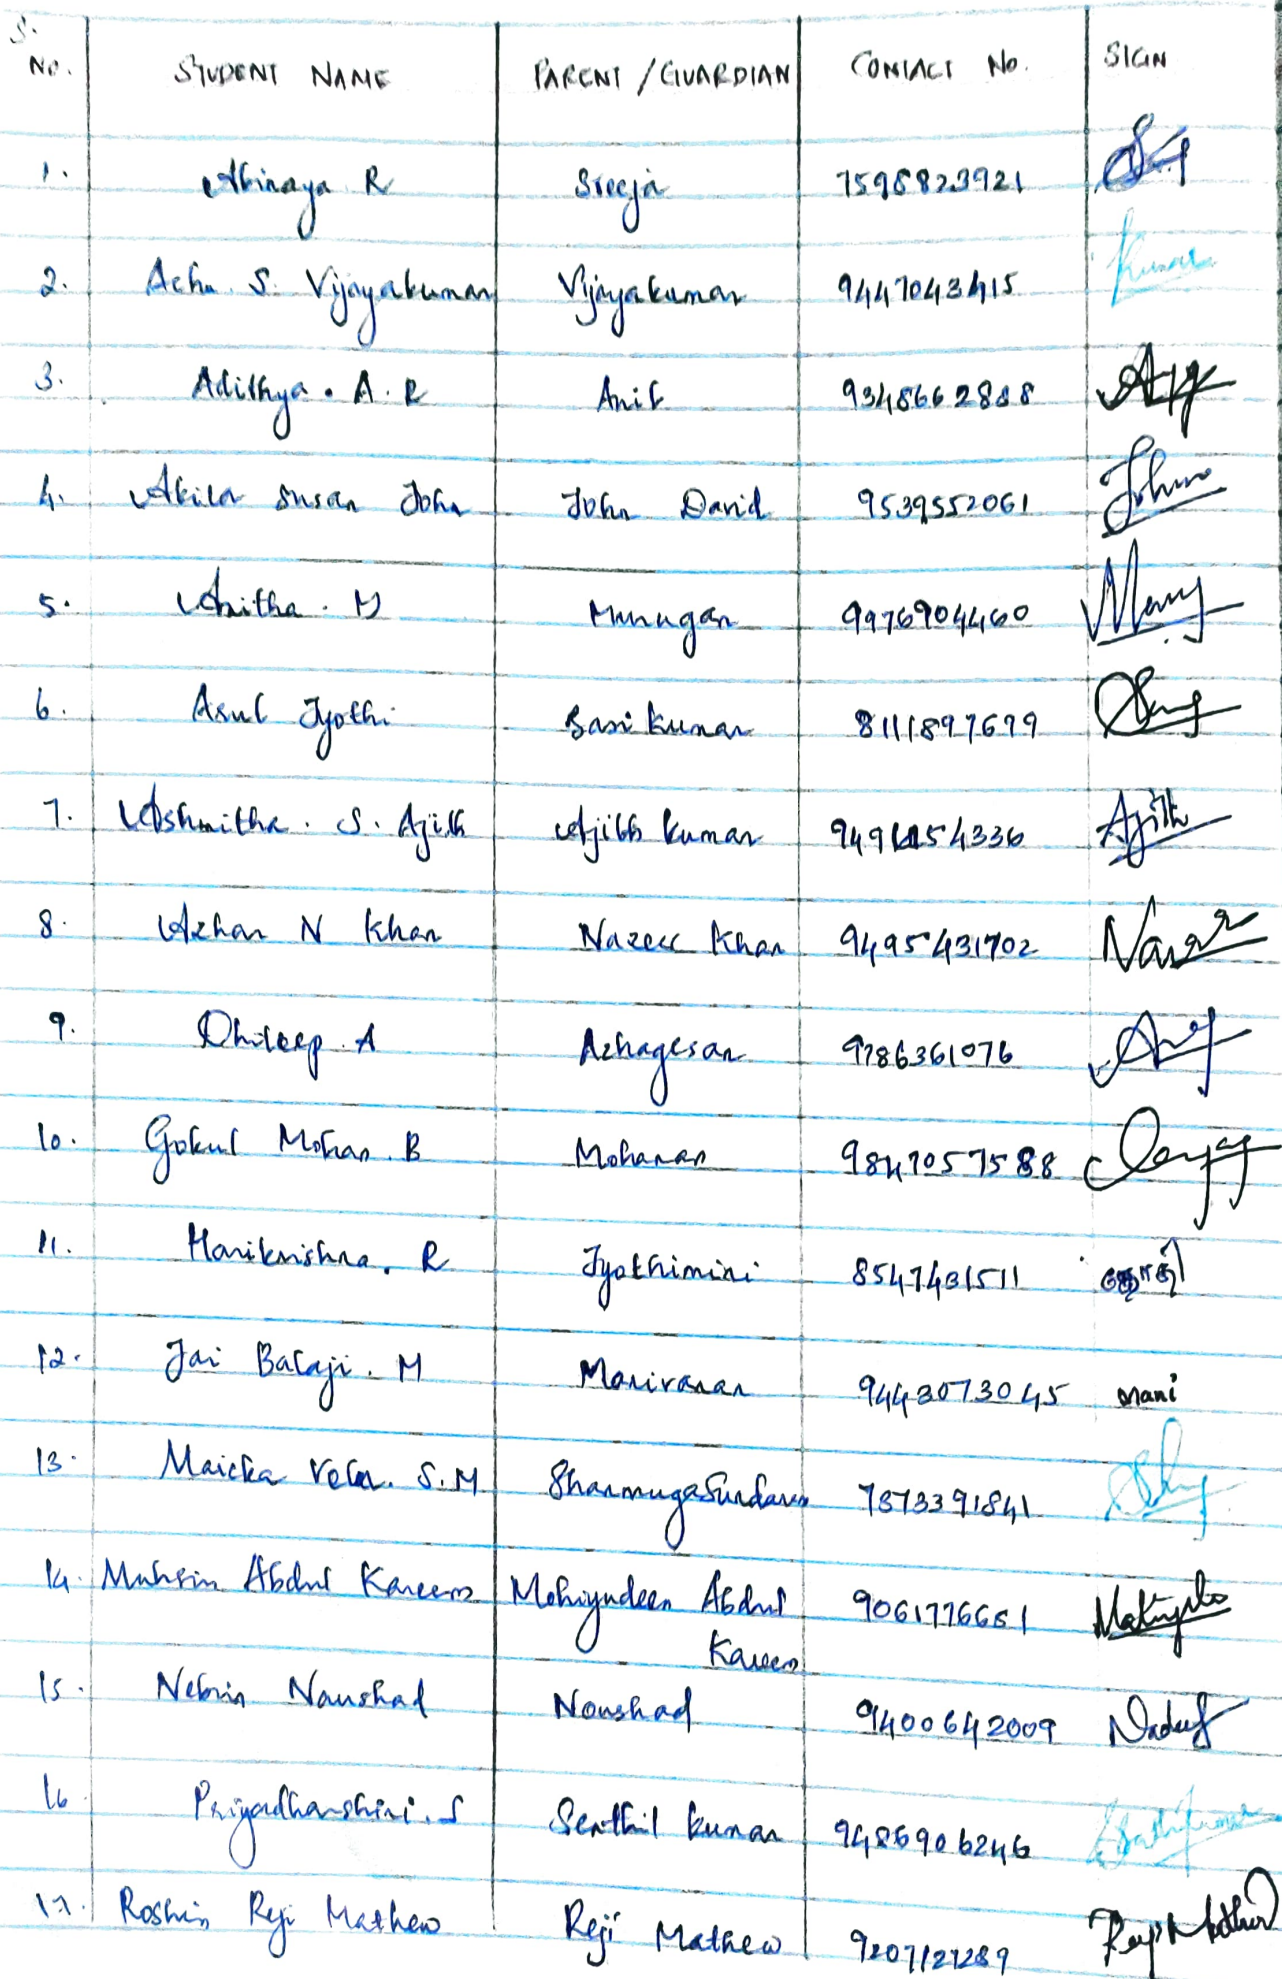 S. No. STUDENT NAME PARENT / GUARDIAN CONTACT No. SIGN
1. Abinaya R Sreeja 7598823921
2. Achu S. Vijayakumar Vijayakumar 9447043415 Kumar
3. Adithya. A. R Anil 9348662888
4. Akila Susan John John David 9539552061 John
5. Anitha. M Murugan 9976904460
6. Arul Jyothi Sasi kumar 8111897679
7. Ashmitha. S. Ajith Ajith kumar 4336 Ajith
8. Azhar N Khan Nazeer Khan 9495431702
9. Dhileep. A Azhagesan 9786361076
10. Gokul Mohan. B Mohanan 9847057588
11. Harikrishna. R Jyothimini 8547431511 ஜோதி
12. Jai Balaji. M Manivanan 9443073045 mani
13. Maicka Vela. S.M Shanmugasundaram 7373391841
14. Muhsin Abdul Kareem Mohiyudeen Abdul 9061776651
Kareem
15. Nebin Naushad Noushad 9400642009
16 Priyadharshini. S Senthil kumar 9486906246
17. Roshin Reji Mathew Reji Mathew 9207127289 Reji Mathew